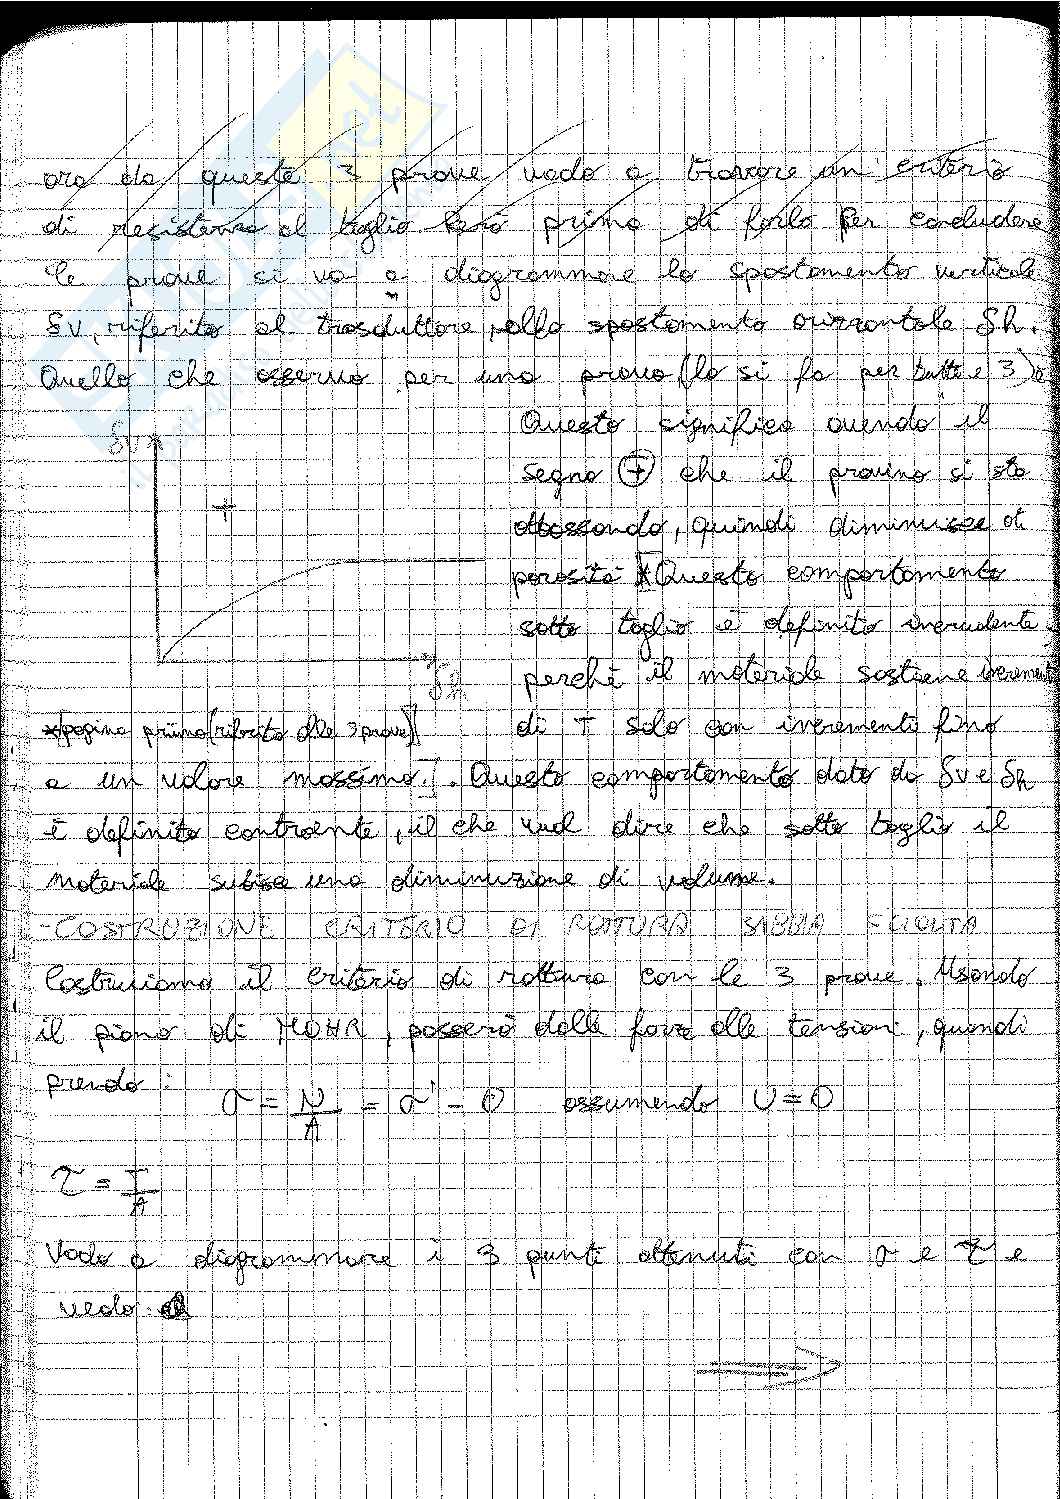 ora da queste 3 prove vado a trovare un criterio
di resistenza al taglio però prima di farlo per concludere
le prove si va a diagrammare lo spostamento verticale
δv, riferito al trasduttore, allo spostamento orizzontale δh.
Quello che osservo per una prova (lo si fa per tutte e 3) è
δv
+
δh
Questo significa avendo il
segno + che il provino si sta
abbassando, quindi diminuisce di
porosità * Questo comportamento
sotto taglio è definito incrudente
perché il materiale sostiene incrementi
*[pagina prima (riferito alle 3 prove)]
di T solo con incrementi fino
a un valore massimo.]. Questo comportamento dato da δv e δh
è definito contraente, il che vuol dire che sotto taglio il
materiale subisce una diminuzione di volume.
-COSTRUZIONE CRITERIO DI ROTTURA SABBIA SCIOLTA
Costruiamo il criterio di rottura con le 3 prove. Usando
il piano di MOHR, passerò dalle forze alle tensioni, quindi
prendo:
σ = N/A = σ' - 0 assumendo U=0
τ = T/A
Vado a diagrammare i 3 punti ottenuti con σ e τ e
vedo: